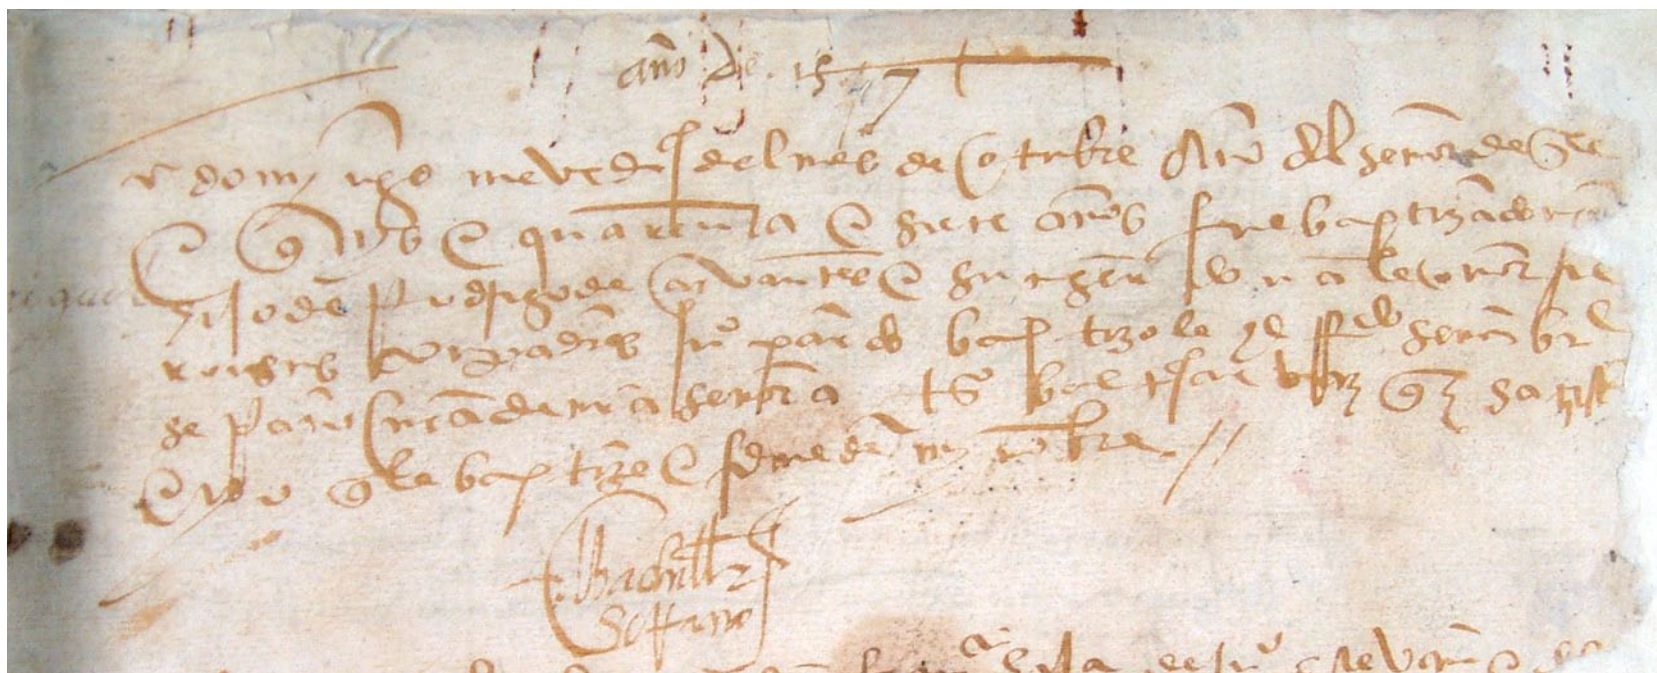 año de 1547
domingo nueve dias del mes de otubre Año del señor de mill
e qis e quarenta e siete años fue baptizado miguel
hijo de Rodrigo de cervantes e su muger doña leonor fue
ron sus conpadres juº pardo baptizole el Rdo señor br
serrano cura de nra señora tsº baltasar vazqz sacristan
e yo q le baptize e firme de mi nonbre
Bachiller
Serrano